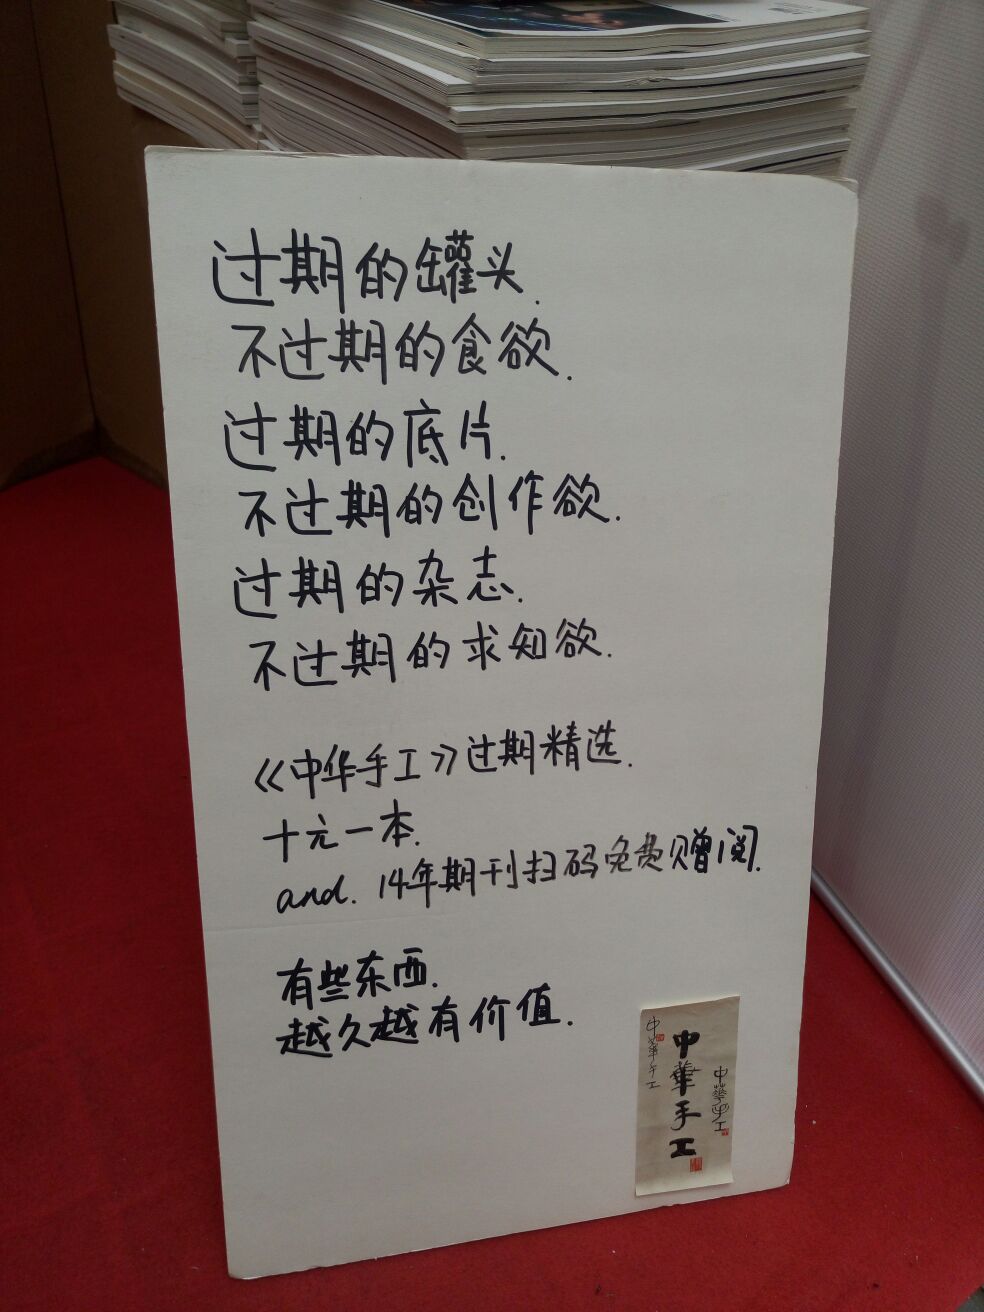 过期的罐头.
不过期的食欲.
过期的底片.
不过期的创作欲.
过期的杂志.
不过期的求知欲.
《中华手工》过期精选.
十元一本.
and. 14年期刊扫码免费赠阅.
有些东西.
越久越有价值.
中华手工
中華手工
中華手工